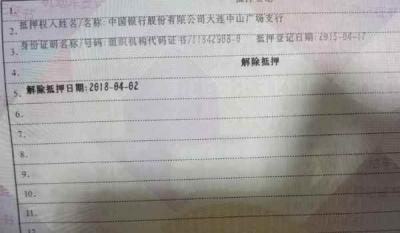 1.
2. 抵押权人姓名/名称:中国银行股份有限公司大连中山广场支行
3. 身份证明名称/号码:组织机构代码证书/11842908-0 抵押登记日期:2015-04-17
4. 解除抵押
5. 解除抵押日期:2018-04-02
6.
7.
8.
9.
10.
11.
12